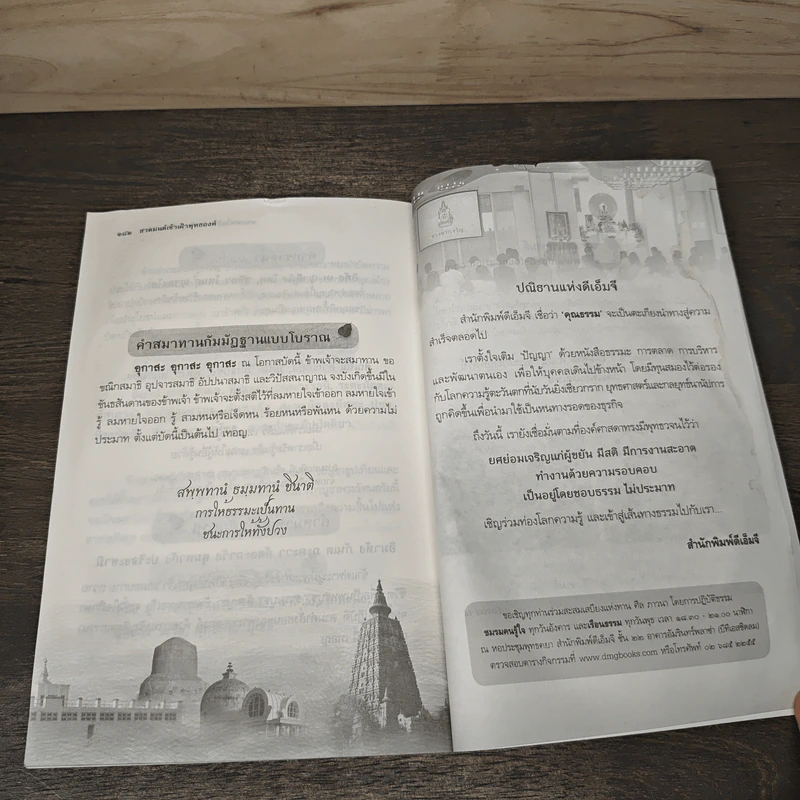 ๑๘๒ สวดมนต์เข้าเฝ้าพุทธองค์
คำสมาทานกัมมัฏฐานแบบโบราณ
อุกาสะ อุกาสะ อุกาสะ ณ โอกาสบัดนี้ ข้าพเจ้าจะสมาทาน ขอ
ขณิกสมาธิ อุปจารสมาธิ อัปปนาสมาธิ และวิปัสสนาญาณ จงบังเกิดขึ้นมีใน
ขันธสันดานของข้าพเจ้า ข้าพเจ้าจะตั้งสติไว้ที่ลมหายใจเข้าออก ลมหายใจเข้า
รู้ ลมหายใจออก รู้ สามหนหรือเจ็ดหน ร้อยหนหรือพันหน ด้วยความไม่
ประมาท ตั้งแต่บัดนี้เป็นต้นไป เทอญ.
สพฺพทานํ ธมฺมทานํ ชินาติ
การให้ธรรมะเป็นทาน
ชนะการให้ทั้งปวง
ปณิธานแห่งดีเอ็มจี
สำนักพิมพ์ดีเอ็มจี เชื่อว่า 'คุณธรรม' จะเป็นตะเกียงนำทางสู่ความ
สำเร็จตลอดไป
เราตั้งใจเติม 'ปัญญา' ด้วยหนังสือธรรมะ การตลาด การบริหาร
และพัฒนาตนเอง เพื่อให้บุคคลเดินไปข้างหน้า โดยมีทุนสมองไว้ต่อรอง
กับโลกความรู้ตะวันตกที่นับวันยิ่งเชี่ยวกราก ยุทธศาสตร์และกลยุทธ์นานัปการ
ถูกคิดขึ้นเพื่อนำมาใช้เป็นหนทางรอดของธุรกิจ
ถึงวันนี้ เรายังเชื่อมั่นตามที่องค์ศาสดาทรงมีพุทธวจนไว้ว่า
ยศย่อมเจริญแก่ผู้ขยัน มีสติ มีการงานสะอาด
ทำงานด้วยความรอบคอบ
เป็นอยู่โดยชอบธรรม ไม่ประมาท
เชิญร่วมท่องโลกความรู้ และเข้าสู่เส้นทางธรรมไปกับเรา...
สำนักพิมพ์ดีเอ็มจี
ขอเชิญทุกท่านร่วมสะสมเสบียงแห่งทาน ศีล ภาวนา โดยการปฏิบัติธรรม
ชมรมคนรู้ใจ ทุกวันอังคาร และเรือนธรรม ทุกวันพุธ เวลา ๑๘.๓๐ - ๒๑.๐๐ นาฬิกา
ณ หอประชุมพุทธคยา สำนักพิมพ์ดีเอ็มจี ชั้น ๒๒ อาคารอัมรินทร์พลาซ่า (บีทีเอสชิดลม)
ตรวจสอบตารางกิจกรรมที่ www.dmgbooks.com หรือโทรศัพท์ ๐๒ ๖๘๕ ๒๒๕๕